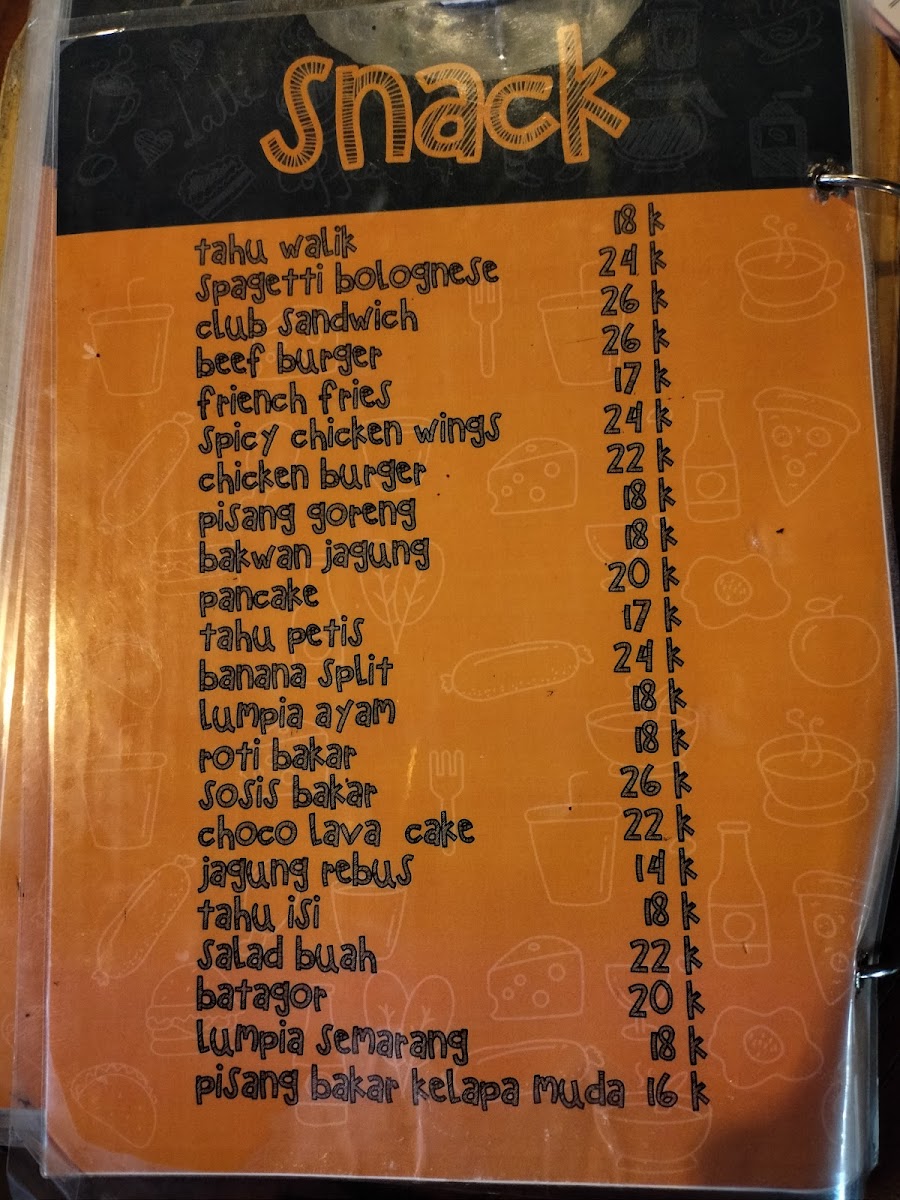 snack
tahu walik 18 k
spagetti bolognese 24 k
club sandwich 26 k
beef burger 26 k
friench fries 17 k
spicy chicken wings 24 k
chicken burger 22 k
pisang goreng 18 k
bakwan jagung 18 k
pancake 20 k
tahu petis 17 k
banana split 24 k
lumpia ayam 18 k
roti bakar 18 k
sosis bakar 26 k
choco lava cake 22 k
jagung rebus 14 k
tahu isi 18 k
salad buah 22 k
batagor 20 k
lumpia semarang 18 k
pisang bakar kelapa muda 16 k